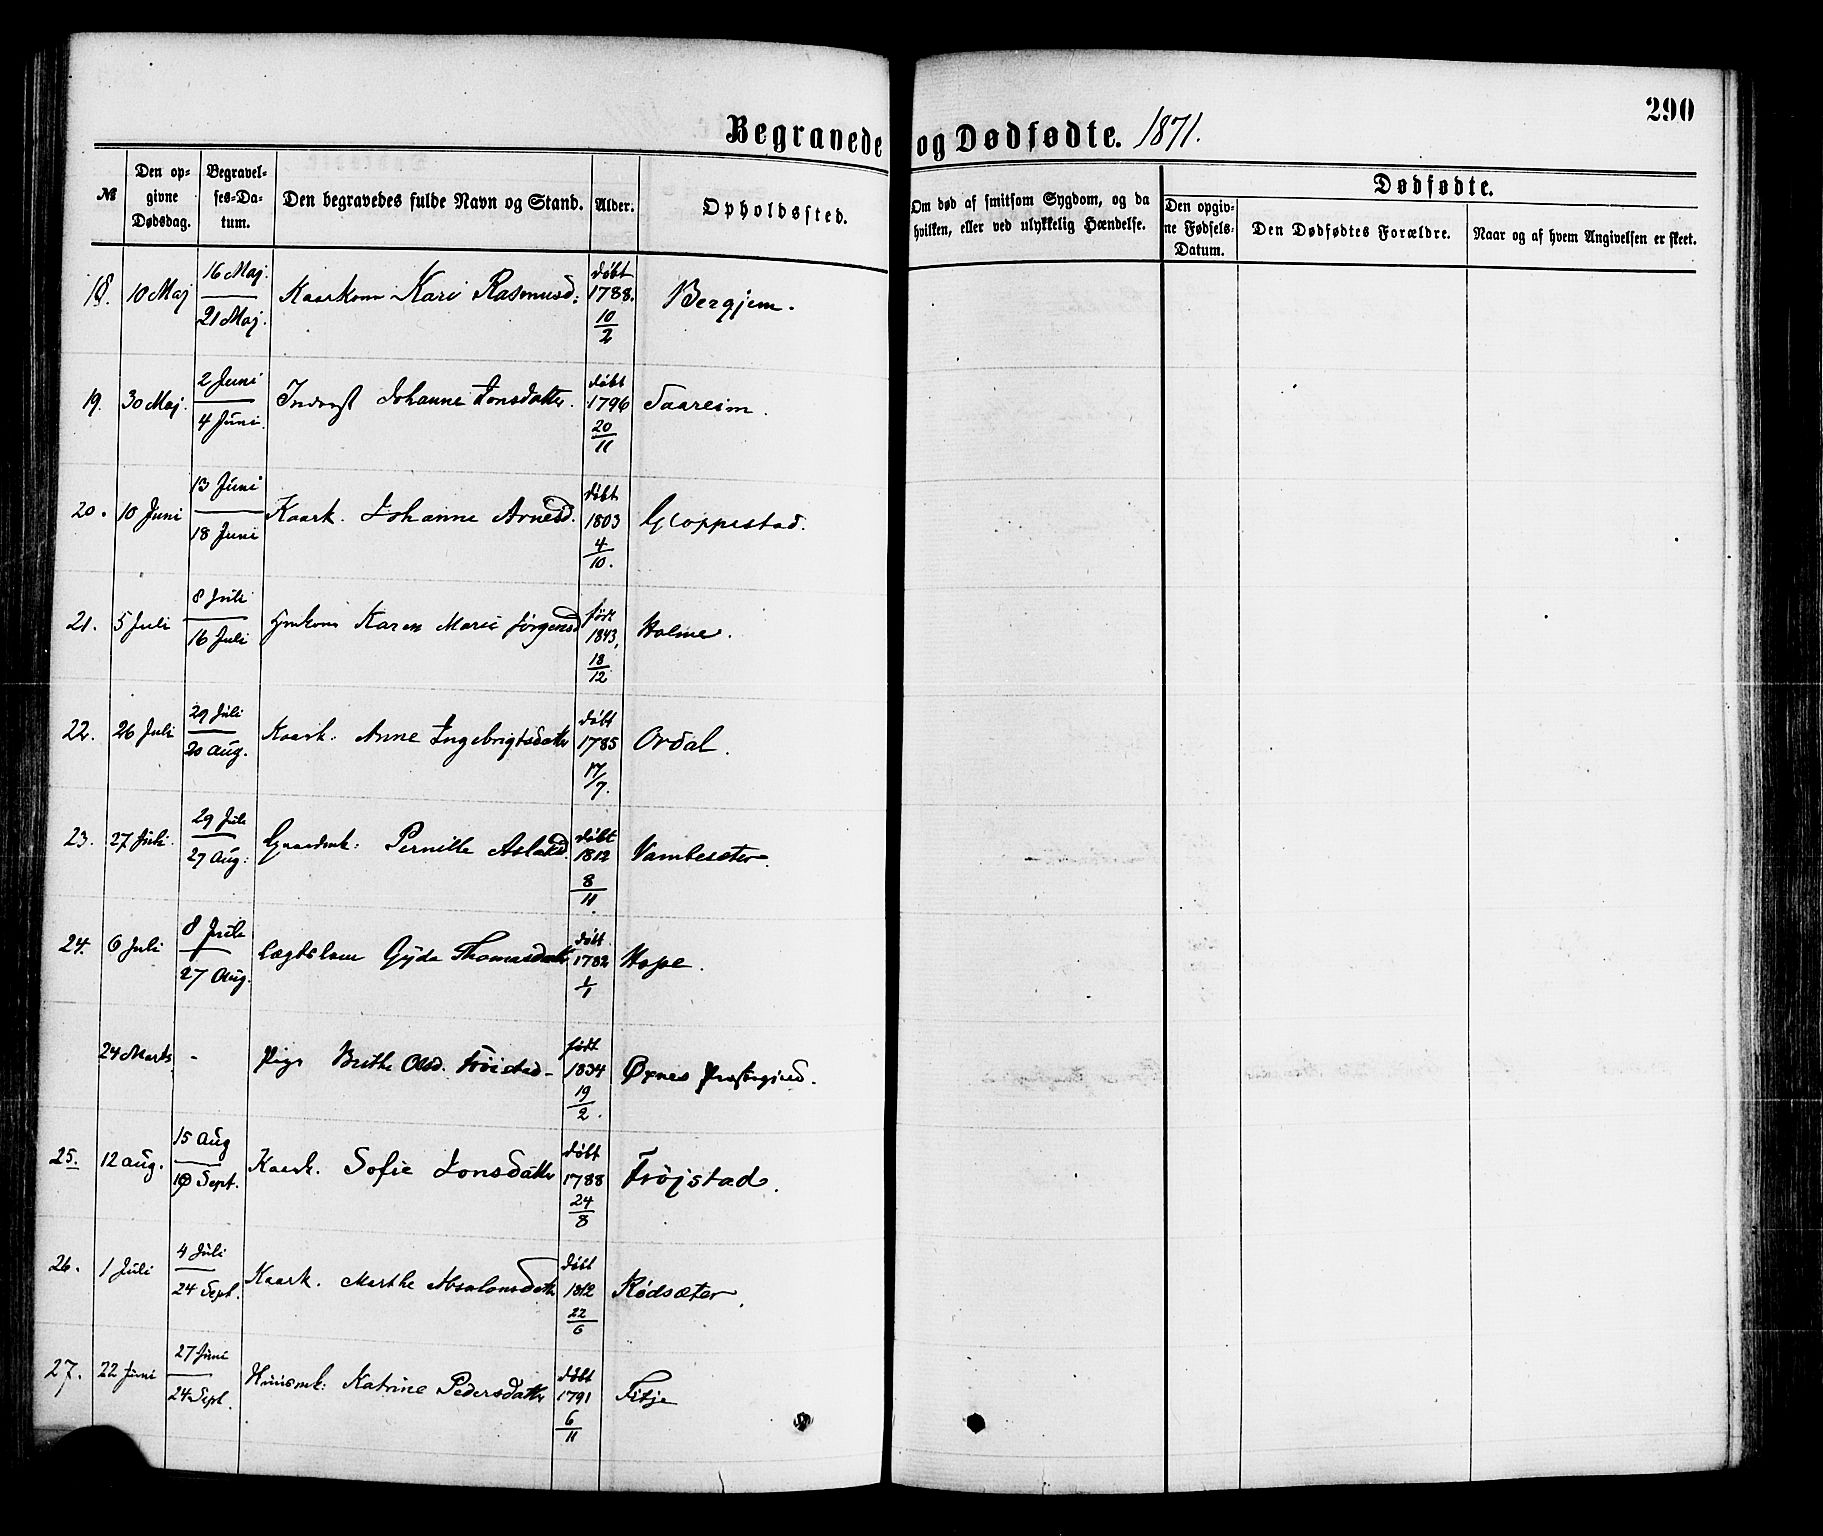 290
Begravede og Dødfødte. 1871.
№
Den opgivne Dødsdag.
Begravelses-Datum.
Den begravedes fulde Navn og Stand.
Alder.
Opholdssted.
Om død af smitsom Sygdom, og da hvilken, eller ved ulykkelig Hændelse.
Dødfødte.
Den opgivne Fødsels-Datum.
Den Dødfødtes Forældre.
Naar og af hvem Angivelsen er skeet.
18. 10 Maj 16 Maj. 21 Maj. Kaarkone Kari Rasmusd: døbt 1788. 10/2 Bergjem.
19. 30 Maj. 2 Juni 4 Juni. Inderst Johanne Jonsdatter. døbt 1796 20/11 Taareim.
20. 10 Juni 13 Juni 18 Juni Kaark. Johanne Arnesd. døbt 1803 4/10. Gloppestad.
21. 5 Juli 8 Juli 16 Juli Karen Marie Jørgensd født 1843, 18/12 Holme.
22. 26 Juli 29 Juli 20 Aug. Kaark. Anne Ingebrigtsdatter døbt 1785 17/7. Ordal.
23. 27 Juli. 29 Juli 27 Aug: Gaardmk: Pernille Aslaksd. døbt 1812 8/11. Vambesæter.
24. 6 Juli 8 Juli 27 Aug. Lægdslem Gjyda Thomasdatter døbt. 1782 1/1 Hope.
24 Marts. - Pige Brithe Olsd. Frøistad - født 1834 19/2. Øxnes Præstegjeld.
25. 12 Aug. 15 Aug 10 Sept. Kaark. Sofie Jonsdatter døbt 1788 24/8 Frøjstad.
26. 1 Juli 4 Juli 24 Sept. Kaark. Marthe Absalonsdatter døbt 1812 22/6 Rødsæter.
27. 22 Juni 27 Juni 24 Sept. Huusmk: Katrine Pedersdatter døbt 1791 6/11 Fitje